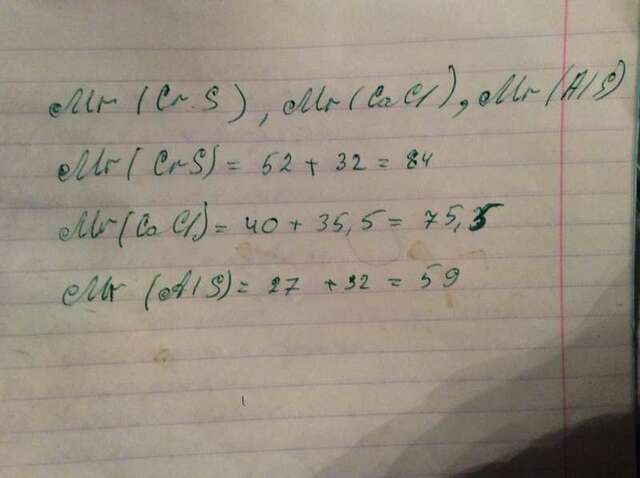 Mr (CrS), Mr (CaCl), Mr (AlS)
Mr (CrS) = 52 + 32 = 84
Mr (CaCl) = 40 + 35,5 = 75,5
Mr (AlS) = 27 + 32 = 59